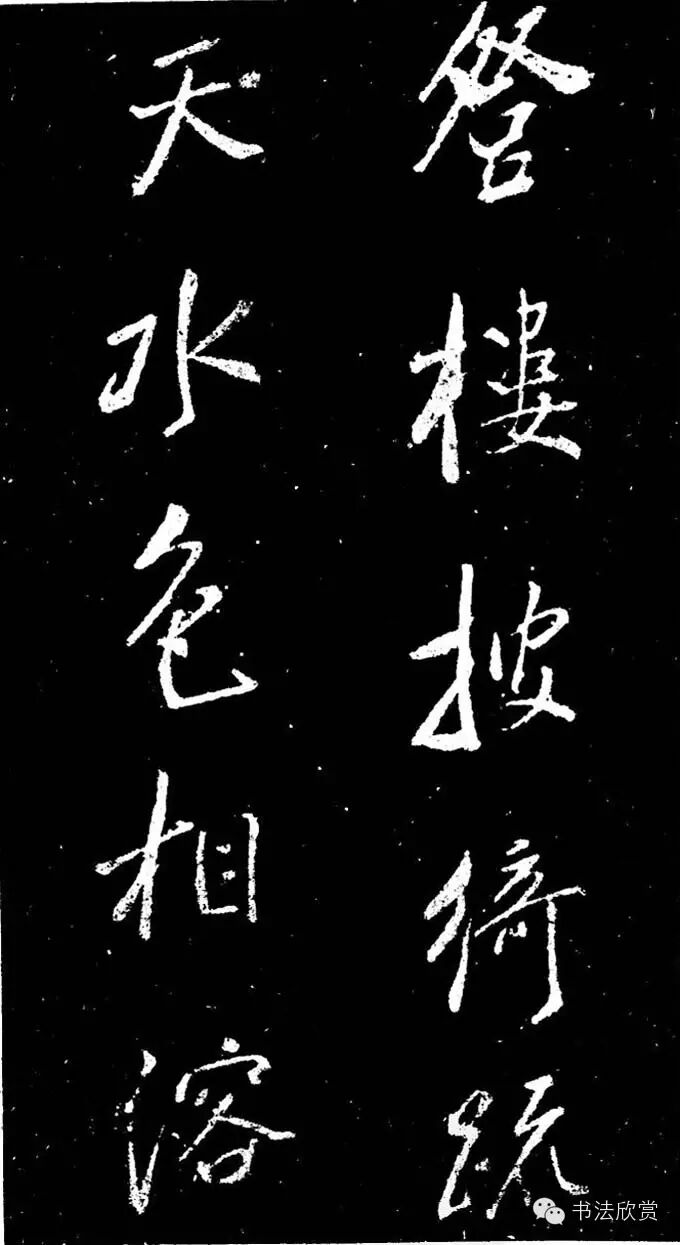 登樓披綺疏
天水色相溶
书法欣赏